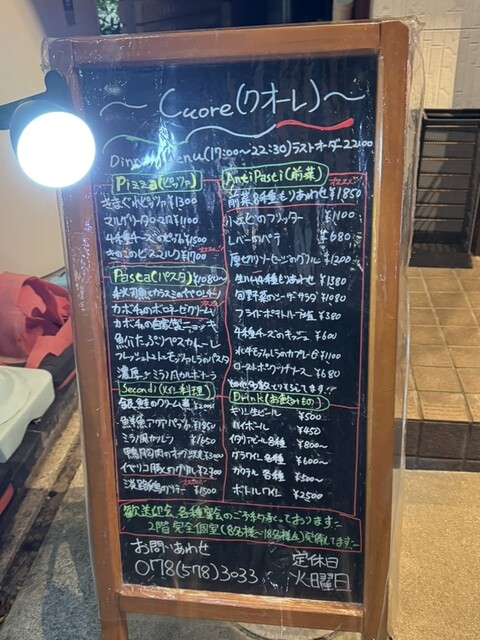 〜 Cuore(クオーレ)〜
Dinner Menu(17:00〜22:30)ラストオーダー22:00
Pizza(ピッツァ)
きまぐれピッツァ ¥1300
マルゲリータ ¥1100
4種チーズのピッツァ ¥1500
きのこのビスマルク ¥1700
Pasta(パスタ) ¥1080〜
秋刀魚とカラスミのペペロンチーノ
カボチャのボロネーゼクリーム
カボチャの自家製ニョッキ
魚介たっぷりペスカトーレ
フレッシュトマトとモッツァレラのパスタ
濃厚ミラノ風カルボナーラ
Secondi(メイン料理)
銀鮭のクリーム煮
鮮魚のアクアパッツァ ¥1850
ミラノ風カツレツ ¥1650
鴨胸肉のオーブン焼
イベリコ豚のグリル ¥2300
淡路鶏のソテー ¥1500
AntiPasti(前菜)
前菜8種もりあわせ ¥1850
小えびのフリッター ¥1100
レバーのパテ ¥680
原ゼリソーセージのグリル ¥1200
生ハム4種もりあわせ ¥1380
旬野菜のシーザーサラダ ¥1080
フライドポテト ¥380
4種チーズのキッシュ ¥600
水牛モッツァレラのカプレーゼ ¥1100
ローストポークツナソース ¥680
Drink(お飲みもの)
キリン生ビール ¥500
ハイボール ¥450
イタリアビール各種 ¥800〜
グラスワイン各種 ¥600〜
カクテル各種 ¥500〜
ボトルワイン ¥2500
歓送迎会、各種宴会のご予約承っております
2階完全個室(8名様〜18名様)完備してます
お問いあわせ
078(578)3033
定休日
火曜日